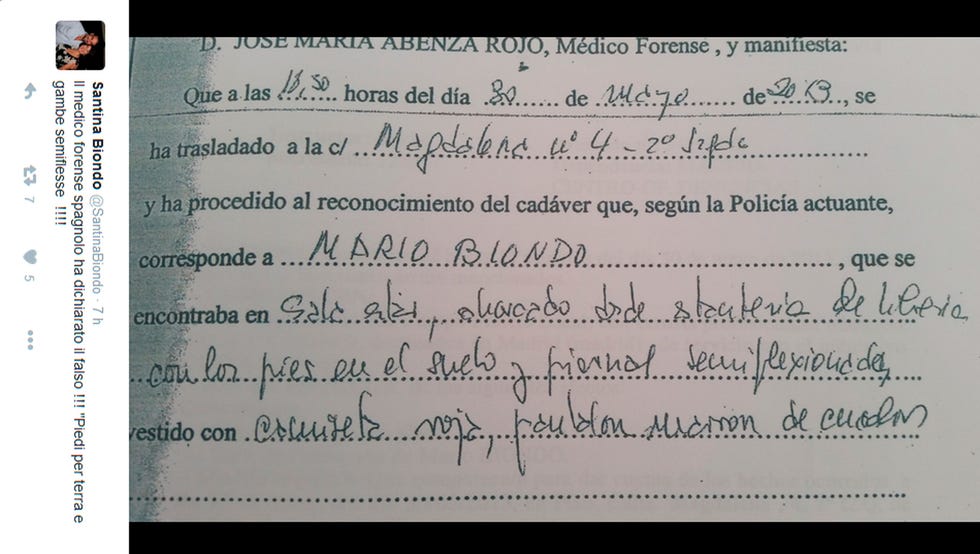 Santina Biondo @SantinaBiondo · 7 h
Il medico forense spagnolo ha dicharato il falso !!! "Piedi per terra e
gambe semiflesse !!!!
7
5
D. JOSE MARIA ABENZA ROJO, Médico Forense , y manifiesta:
Que a las 13,50 horas del día 30 de Mayo de 2013, se
ha trasladado a la c/ Magdalena nº 4 - 2º Izqda
y ha procedido al reconocimiento del cadáver que, según la Policía actuante,
corresponde a MARIO BIONDO , que se
encontraba en Sala estar, ahorcado desde estantería de librería,
con los pies en el suelo y piernas semiflexionadas,
vestido con camiseta roja, pantalon marron de cuadros